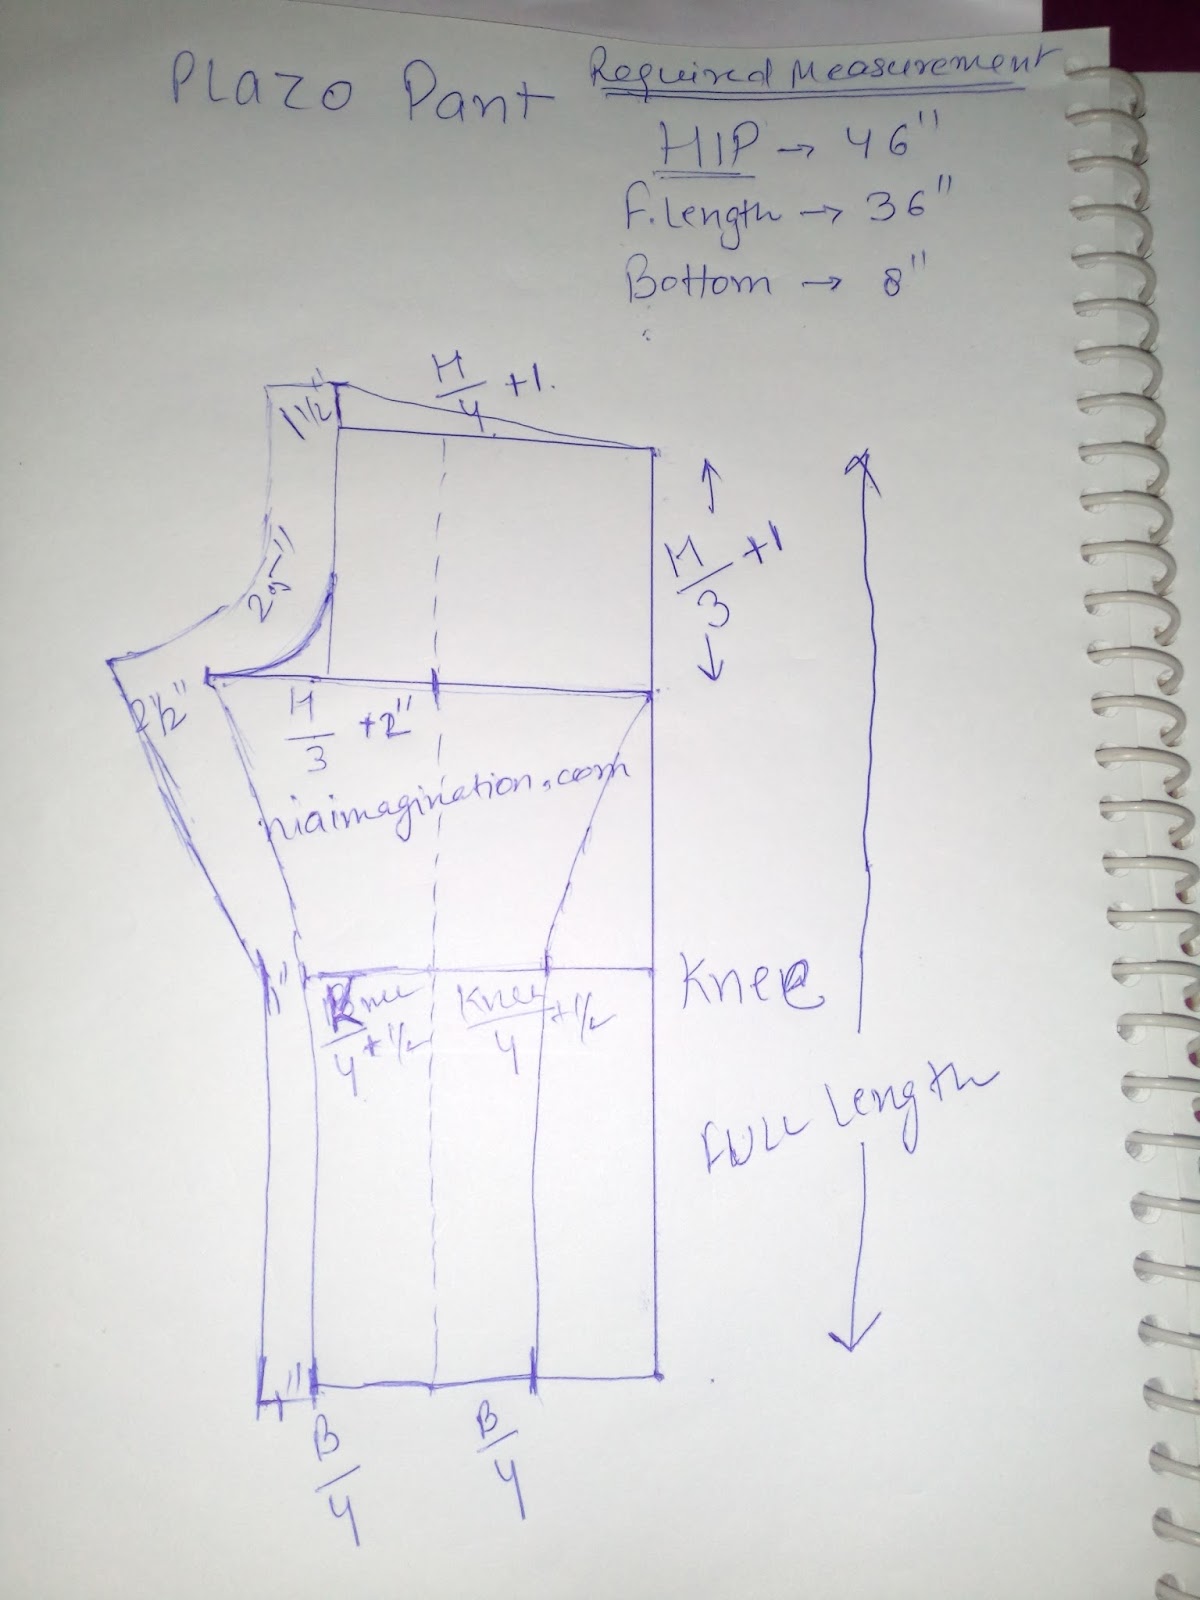 Plazo Pant
Required Measurement
HIP → 46"
F. Length → 36"
Bottom → 8"
H/4 + 1.
1 1/2
H/3 + 1
2 1/2"
H/3 + 2"
niaimagination.com
Knee
1"
/4 + 1/2
Knee/4 + 1/2
Full Length
1"
B/4
B/4